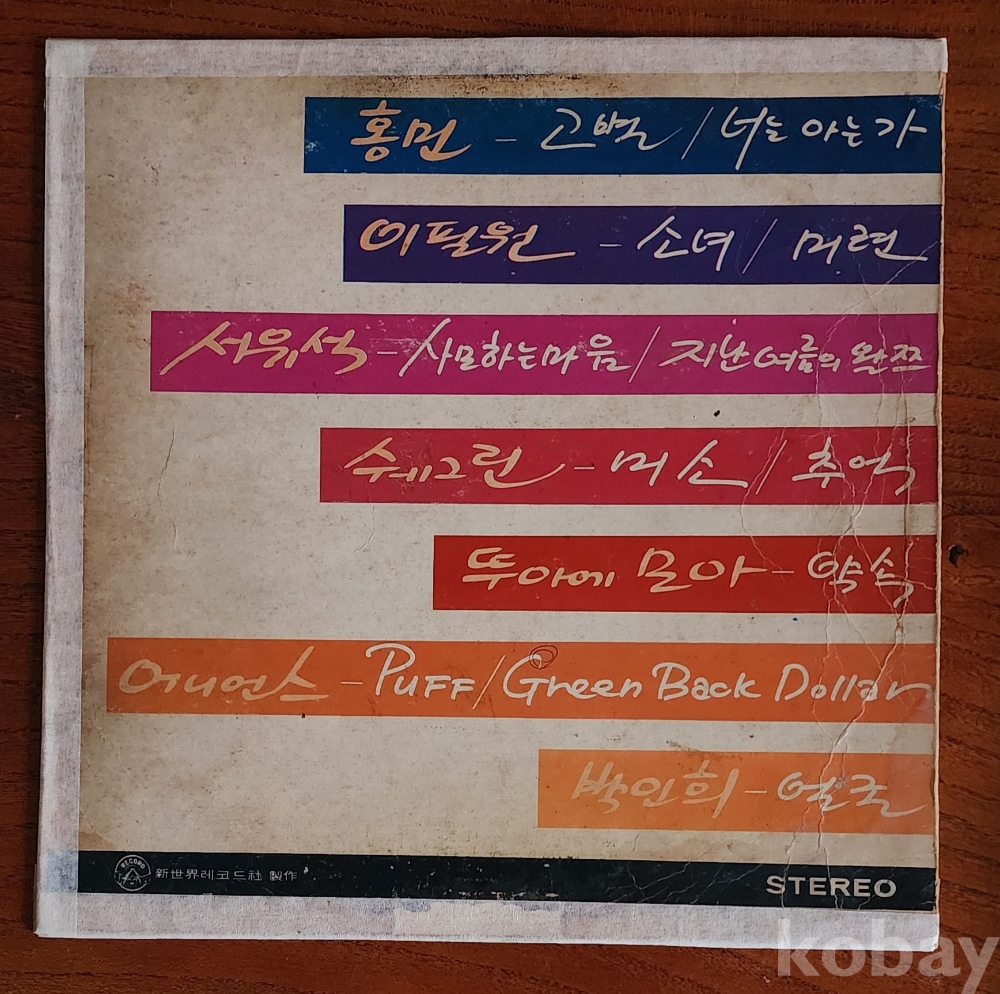 홍민 - 고별 / 너는 아는가
이필원 - 소녀 / 미련
서유석 - 사모하는 마음 / 지난 여름의 왈쯔
쉐그린 - 미소 / 추억
뚜아에 모아 - 약속
어니언스 - PUFF / Green Back Dollar
박인희 - 얼굴
RECORD
新世界레코드社 製作
STEREO
kobay